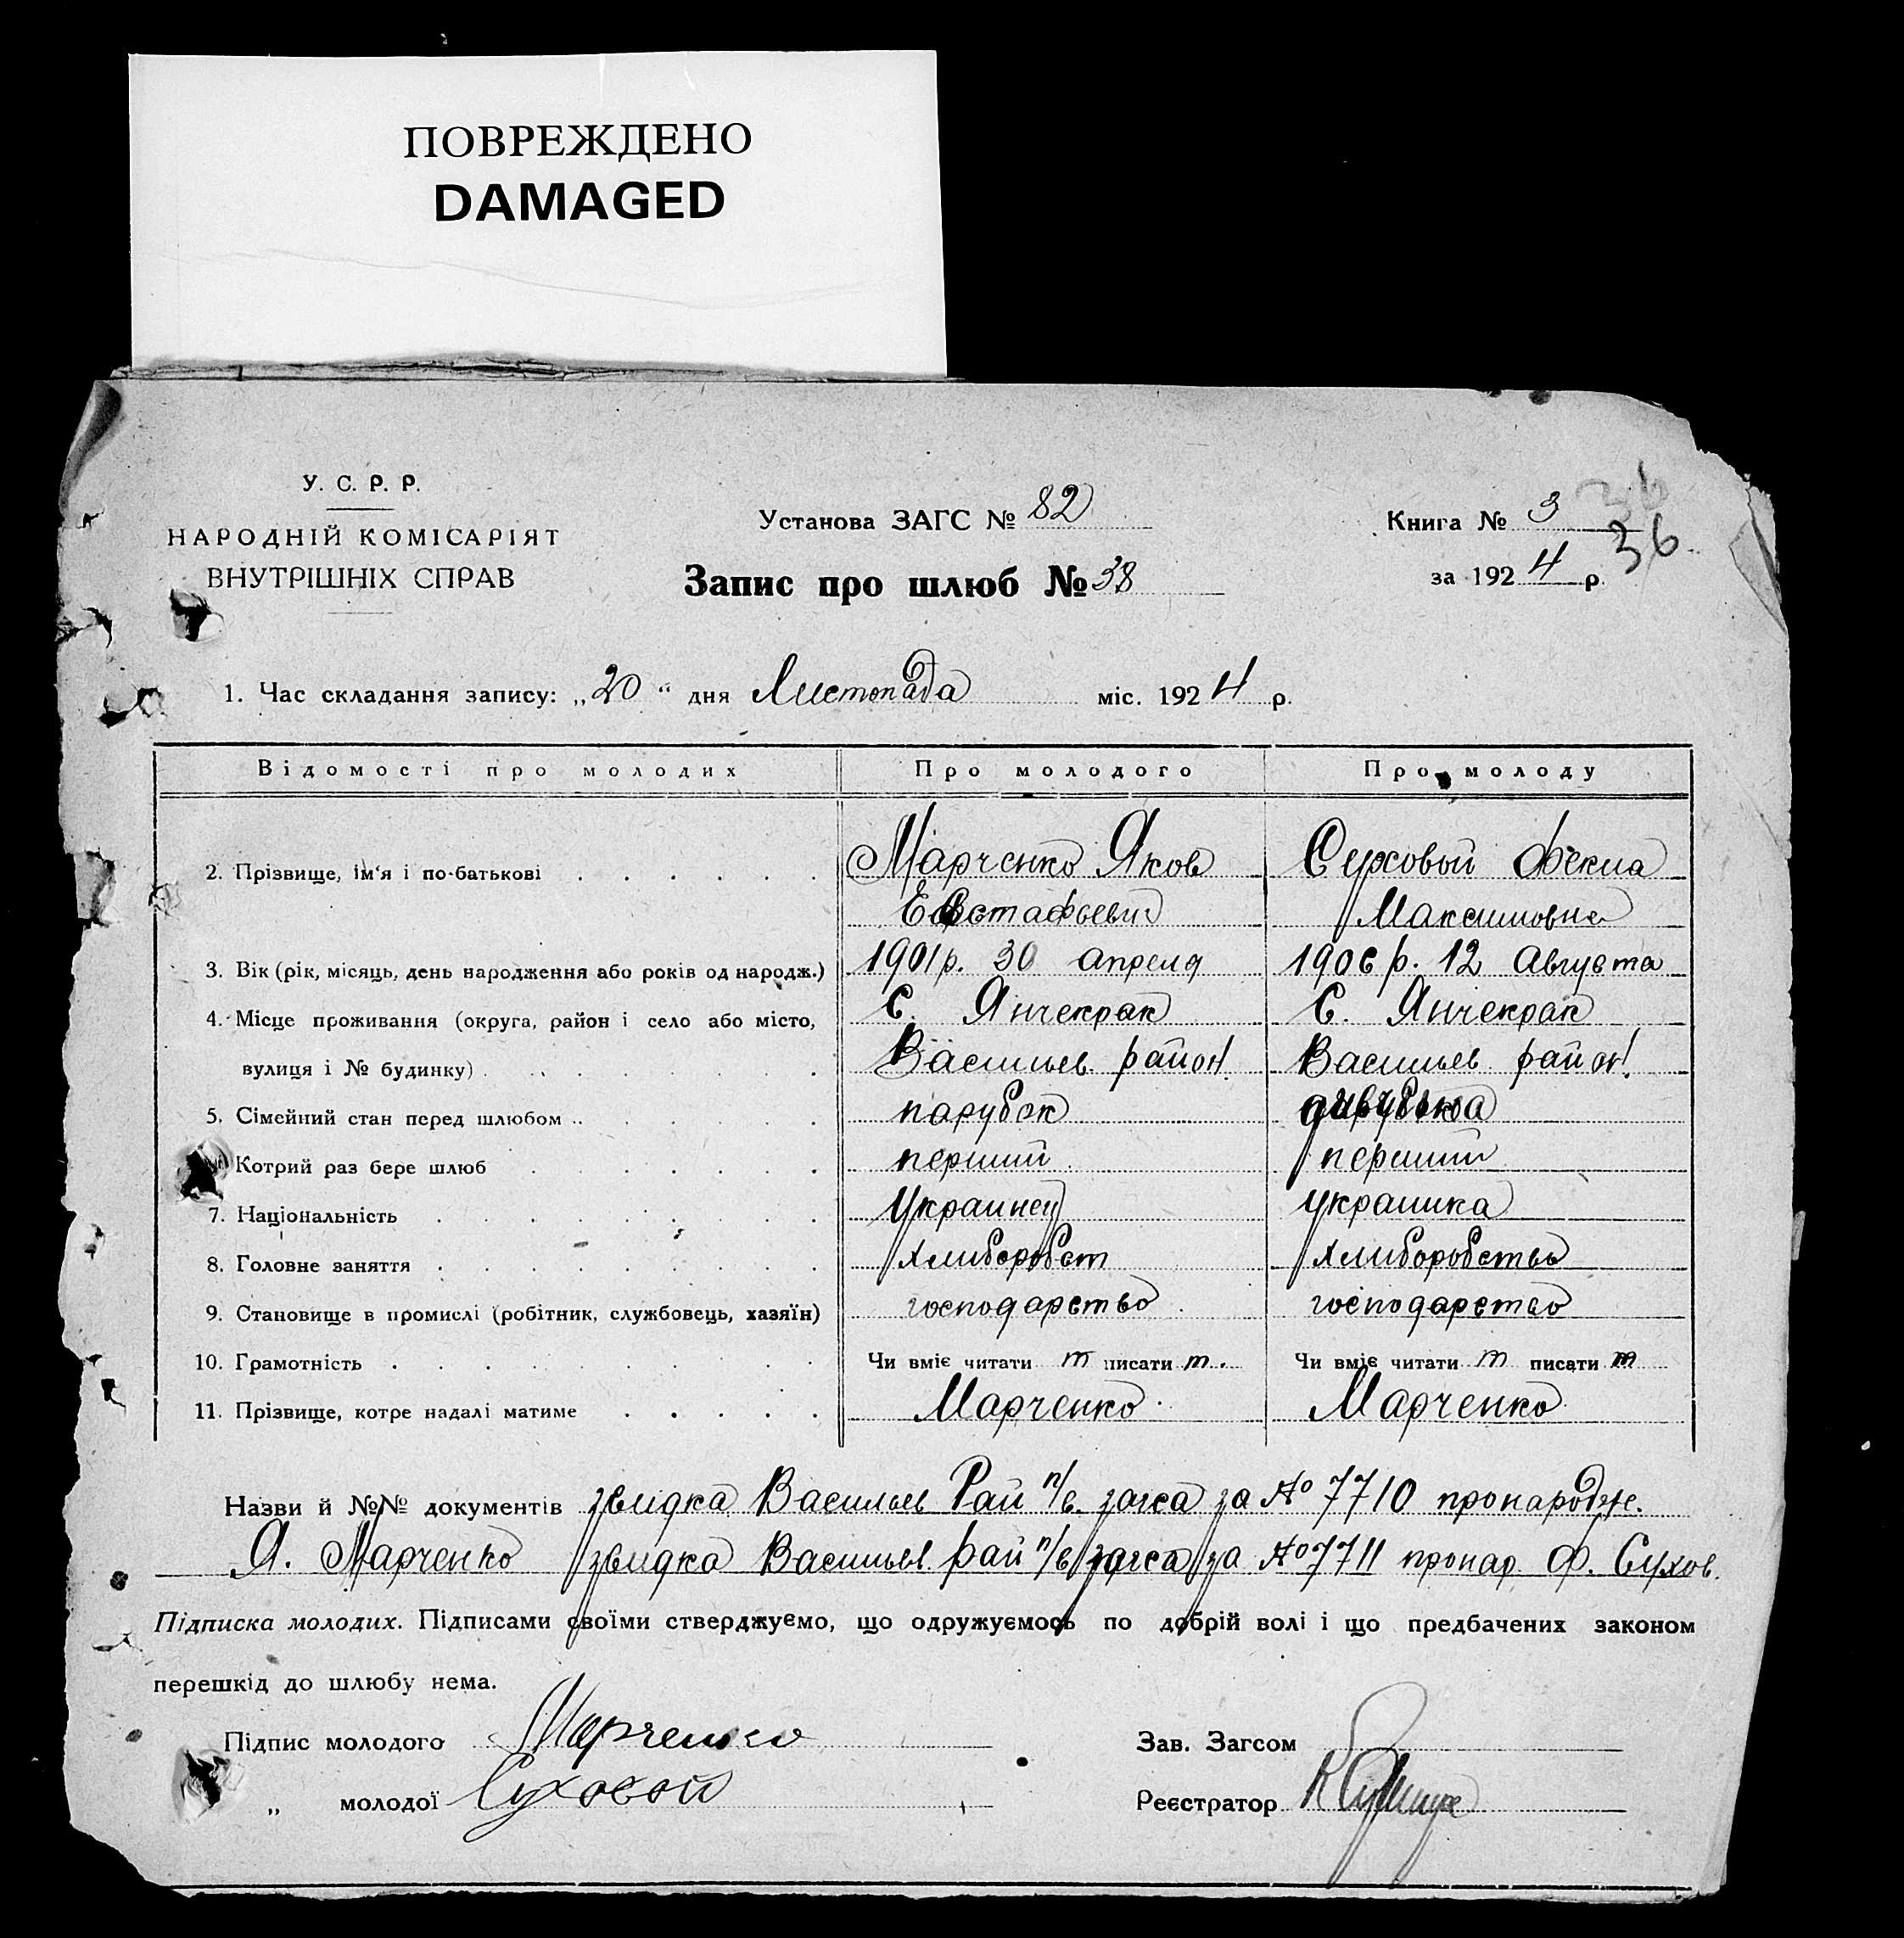 ПОВРЕЖДЕНО
DAMAGED
У. С. Р. Р.
НАРОДНІЙ КОМІСАРІЯТ
ВНУТРІШНІХ СПРАВ
Установа ЗАГС № 82
Запис про шлюб № 38
Книга № 3
36
36
за 1924 р.
1. Час складання запису: „20“ дня Листопада міс. 1924 р.
Відомості про молодих Про молодого Про молоду
2. Прізвище, ім'я і по-батькові Марченко Яков Сухової Фекла
Евстафьевич Максимовна
3. Вік (рік, місяць, день народження або років од народж.) 1901 р. 30 апреля 1906 р. 12 Августа
4. Місце проживання (округа, район і село або місто, С. Янчекрак С. Янчекрак
вулиця і № будинку) Васильев район. Васильев район.
5. Сімейний стан перед шлюбом парубок
Котрий раз бере шлюб перший перший
7. Національність Украинец украинка
8. Головне заняття хлиборобст хлиборобство
9. Становище в промислі (робітник, службовець, хазяїн) господарство господарство
10. Грамотність Чи вміє читати т писати т. Чи вміє читати т писати т
11. Прізвище, котре надалі матиме Марченко Марченко
Назви й №№ документів звидка Васильев Рай п/в. загса за № 7710 пронародже.
Я. Марченко звидка Васильев. рай п/в загса за № 7711 пронар. Ф. Сухов.
Підписка молодих. Підписами своїми стверджуємо, що одружуємось по добрій волі і що предбачених законом
перешкід до шлюбу нема.
Підпис молодого Марченко Зав. Загсом
„ молодої Суховой Реєстратор